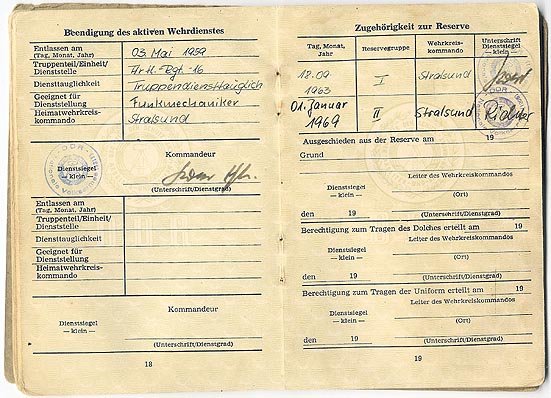 Beendigung des aktiven Wehrdienstes
Entlassen am
(Tag, Monat, Jahr)
03. Mai 1959
Truppenteil/Einheit/
Dienststelle
Diensttauglichkeit
Truppendiensttauglich
Geeignet für
Dienststellung
Funkmechaniker
Heimatwehrkreis-
kommando
Stralsund
Kommandeur
Dienstsiegel
— klein —
(Unterschrift/Dienstgrad)
Entlassen am
(Tag, Monat, Jahr)
Truppenteil/Einheit/
Dienststelle
Diensttauglichkeit
Geeignet für
Dienststellung
Heimatwehrkreis-
kommando
Kommandeur
Dienstsiegel
— klein —
(Unterschrift/Dienstgrad)
18
Zugehörigkeit zur Reserve
Tag, Monat,
Jahr
Reservegruppe
Wehrkreis-
kommando
Unterschrift
Dienstsiegel
— klein —
12.09
1963
I
Stralsund
01. Januar
1969
II
Stralsund
Richter
DDR
Ausgeschieden aus der Reserve am 19
Grund
Dienstsiegel
— klein —
Leiter des Wehrkreiskommandos
(Ort)
den 19
(Unterschrift/Dienstgrad)
Berechtigung zum Tragen des Dolches erteilt am 19
Dienstsiegel
— klein —
Leiter des Wehrkreiskommandos
(Ort)
den 19
(Unterschrift/Dienstgrad)
Berechtigung zum Tragen der Uniform erteilt am 19
Dienstsiegel
— klein —
Leiter des Wehrkreiskommandos
(Ort)
den 19
(Unterschrift/Dienstgrad)
19